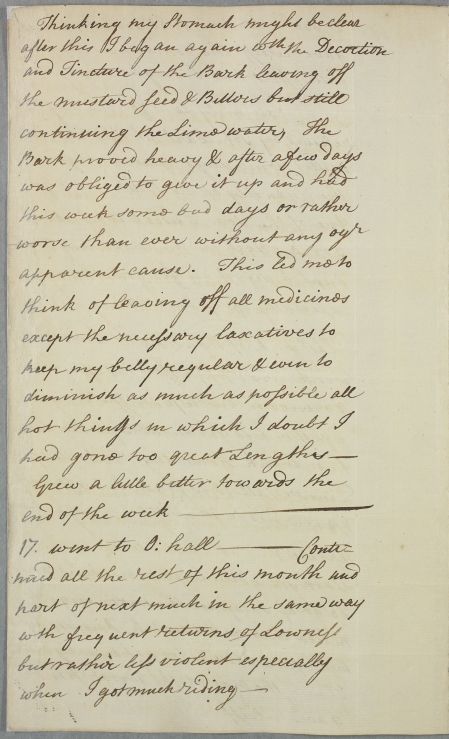 Thinking my Stomach might be clear
after this I began again wth the Decoction
and Tincture of the Bark leaving off
the mustard seed & Bitters but still
continuing the Lime water, The
Bark proved heavy & after a few days
was obliged to give it up and had
this week some bad days or rather
worse than ever without any oyr
apparent cause. This led me to
think of leaving off all medicines
except the necessary laxatives to
keep my belly regular & even to
diminish as much as possible all
hot things in which I doubt I
had gone too great Lengths —
Grew a little better towards the
end of the week —
17. went to O: hall — Conti-
nued all the rest of this month and
part of next much in the same way
wth frequent returns of Lowness
but rather less violent especially
when I got much riding —